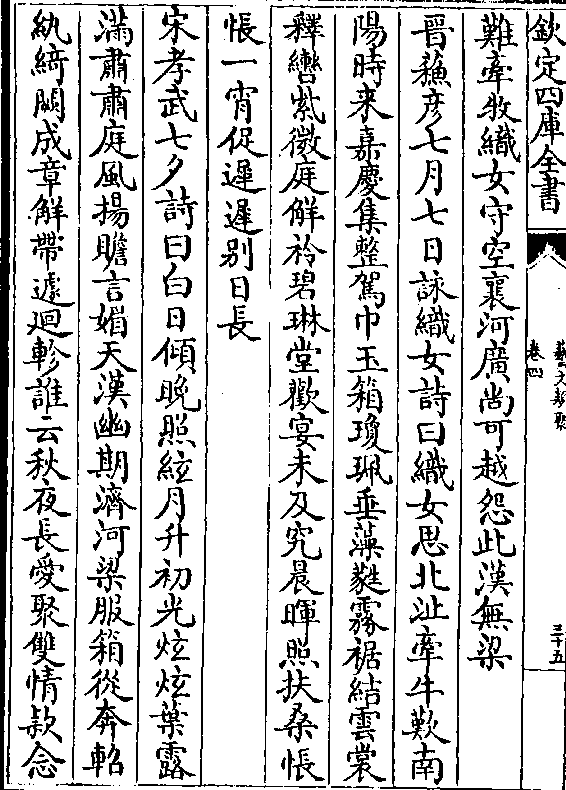 欽定四庫全書
藝文類聚
卷四
三十五
難牽牧織女守空襄河廣尚可越怨此漢無梁
晉蘇彦七月七日詠織女詩曰織女思北沚牽牛歎南
陽時来嘉慶集整駕巾玉箱瓊珮垂藻蕤霧裾結雲裳
釋轡紫微庭解衿碧琳堂歡宴未及究晨暉照扶桑悵
悵一宵促遲遲别日長
宋孝武七夕詩曰白日傾晚照絃月升初光炫炫葉露
滿肅肅庭風揚瞻言媚天漢幽期濟河梁服箱從奔軺
紈綺闕成章解帶遽迴軫誰云秋夜長愛聚雙情款念